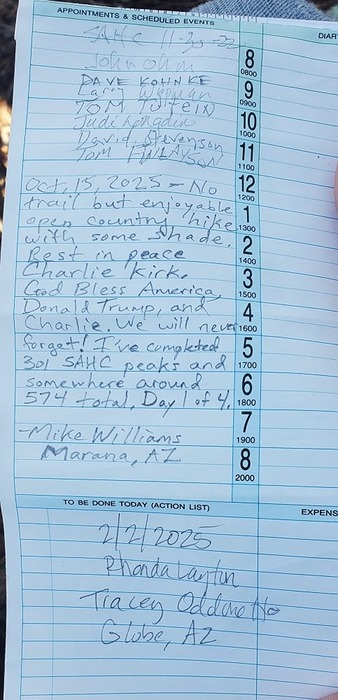 APPOINTMENTS & SCHEDULED EVENTS
DIAR
SAHC 11-30-22
John Ohm
DAVE KOHNKE
Larry
TOM
Judi
David Stevenson
Tom
Oct. 15, 2025 - No
trail but enjoyable
open country hike
with some shade.
Rest in peace
Charlie Kirk.
God Bless America,
Donald Trump, and
Charlie. We will never
forget! I've completed
301 SAHC peaks and
somewhere around
574 total. Day 1 of 4.
-Mike Williams
Marana, AZ
8
0800
9
0900
10
1000
11
1100
12
1200
1
1300
2
1400
3
1500
4
1600
5
1700
6
1800
7
1900
8
2000
TO BE DONE TODAY (ACTION LIST)
EXPENS
2/2/2025
Rhonda Layton
Tracey
Globe, AZ